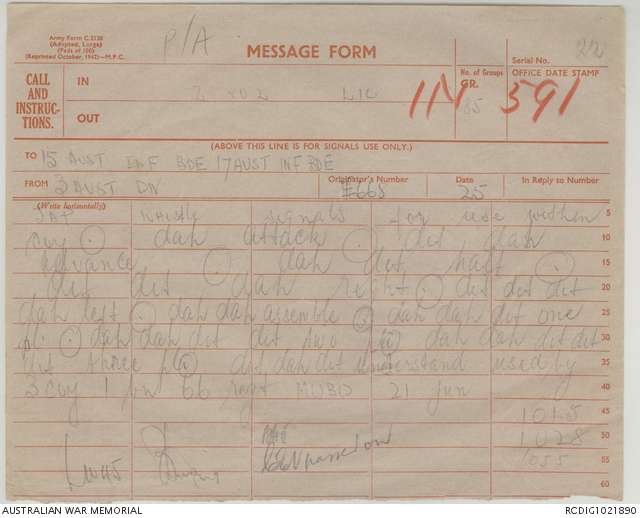 Army Form C.2136
(Adapted, Large)
(Pads of 100)
(Reprinted October, 1942)—M.P.C.
P/A
MESSAGE FORM
Serial No. 22
CALL
AND
INSTRUC-
TIONS.
IN
OUT
No. of Groups
GR.
85
OFFICE DATE STAMP
591
(ABOVE THIS LINE IS FOR SIGNALS USE ONLY.)
TO 15 AUST INF BDE 17 AUST INF BDE
FROM 3 AUST DIV
Originator's Number
G668
Date
25
In Reply to Number
(Write horizontally)
JAP whistle signals for use within 5
coy . dah attack . dit dah 10
advance . dah dit halt . 15
dit dit dah right . dit dit dit 20
dah left . dah dah assemble . dah dah dit one 25
pl . dah dah dit dit two pl . dah dah dit dit 30
dit three pl . dit dah dit understand used by 35
3 coy 1 bn 66 regt MUBO 21 jun 40
45
1015
50
1028
55
1055
60
AUSTRALIAN WAR MEMORIAL
RCDIG1021890